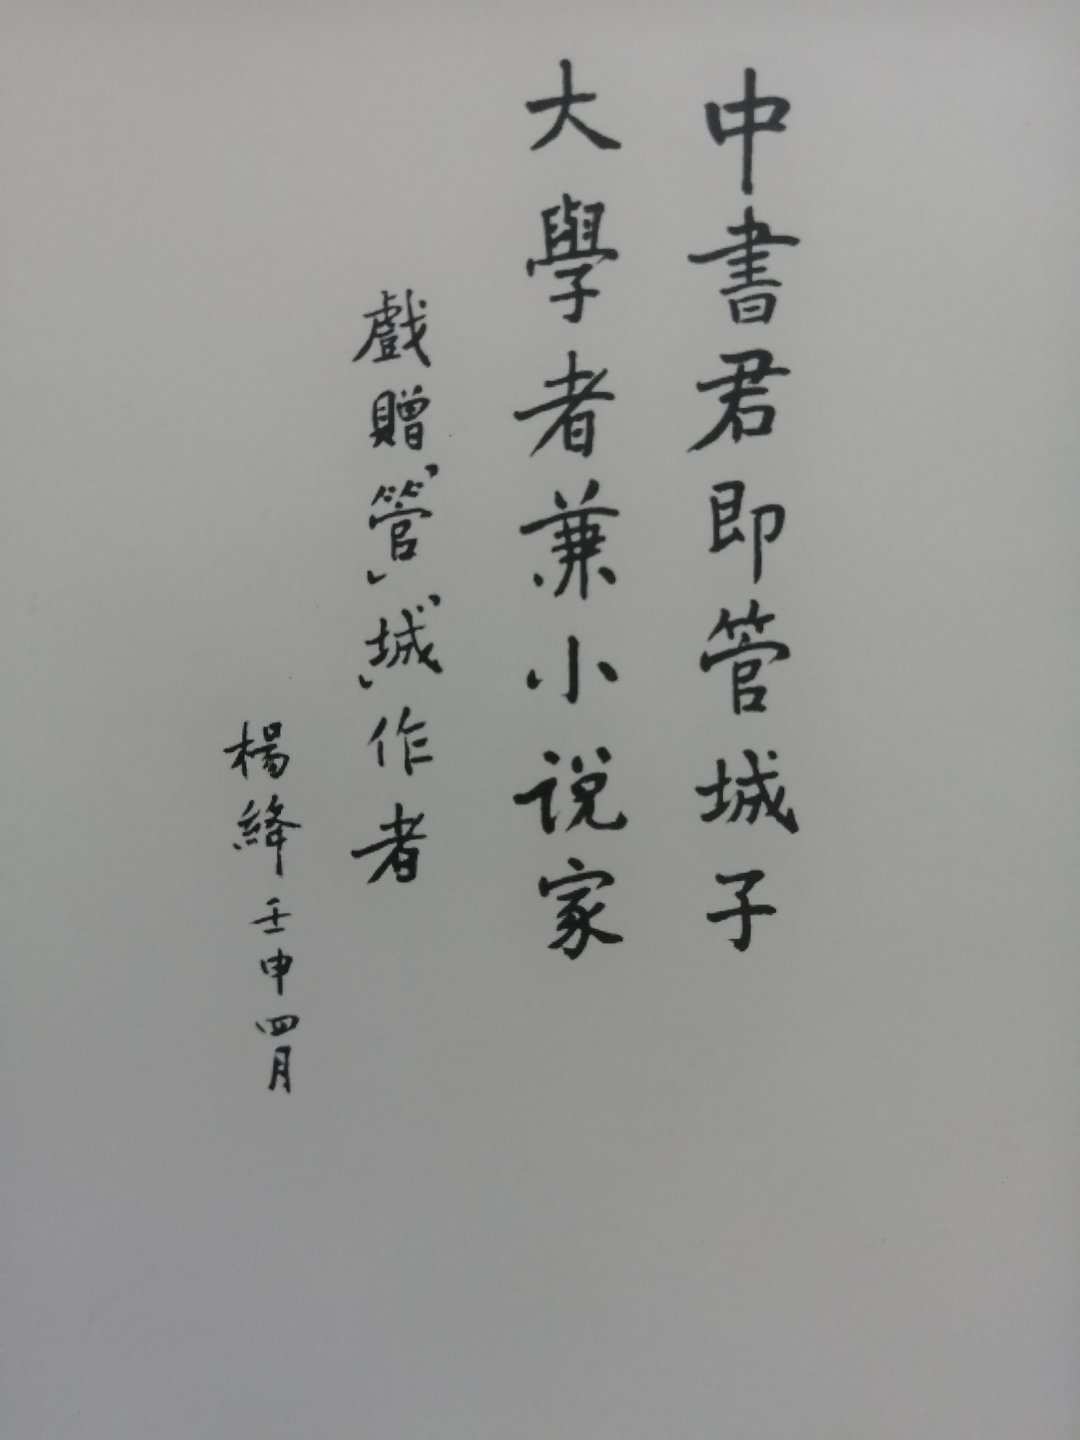 中書君即管城子
大學者兼小说家
戲贈「管」「城」作者
楊絳壬申四月